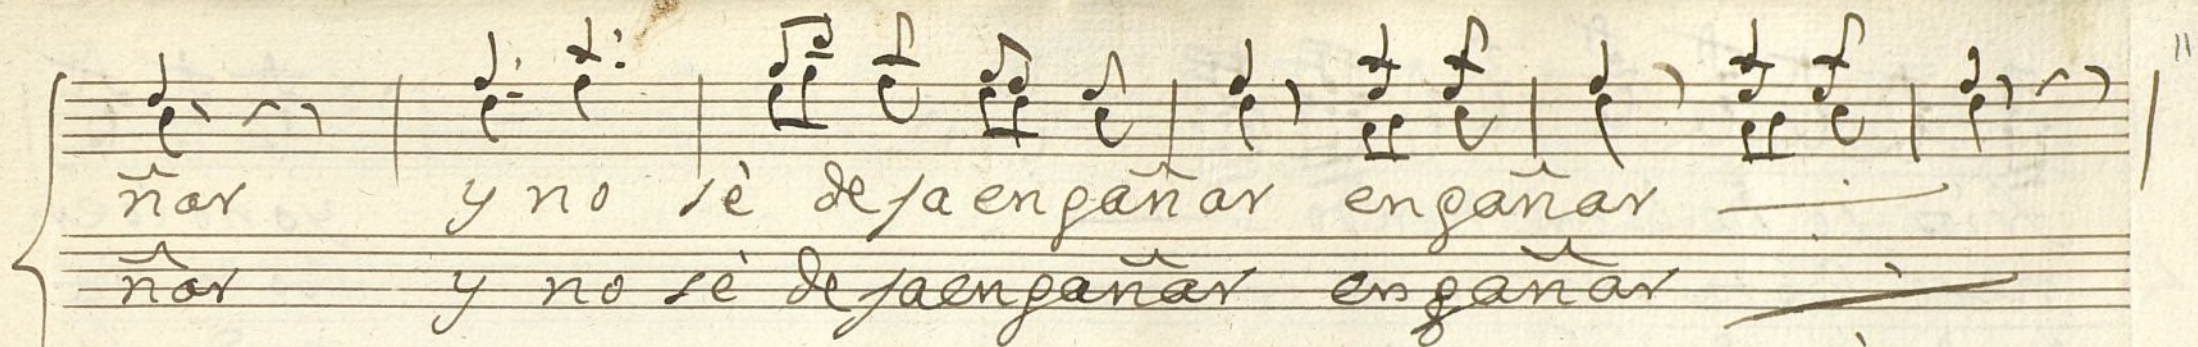 ñar y no sè desa engañar engañar
ñar y no sè desaengañar engañar